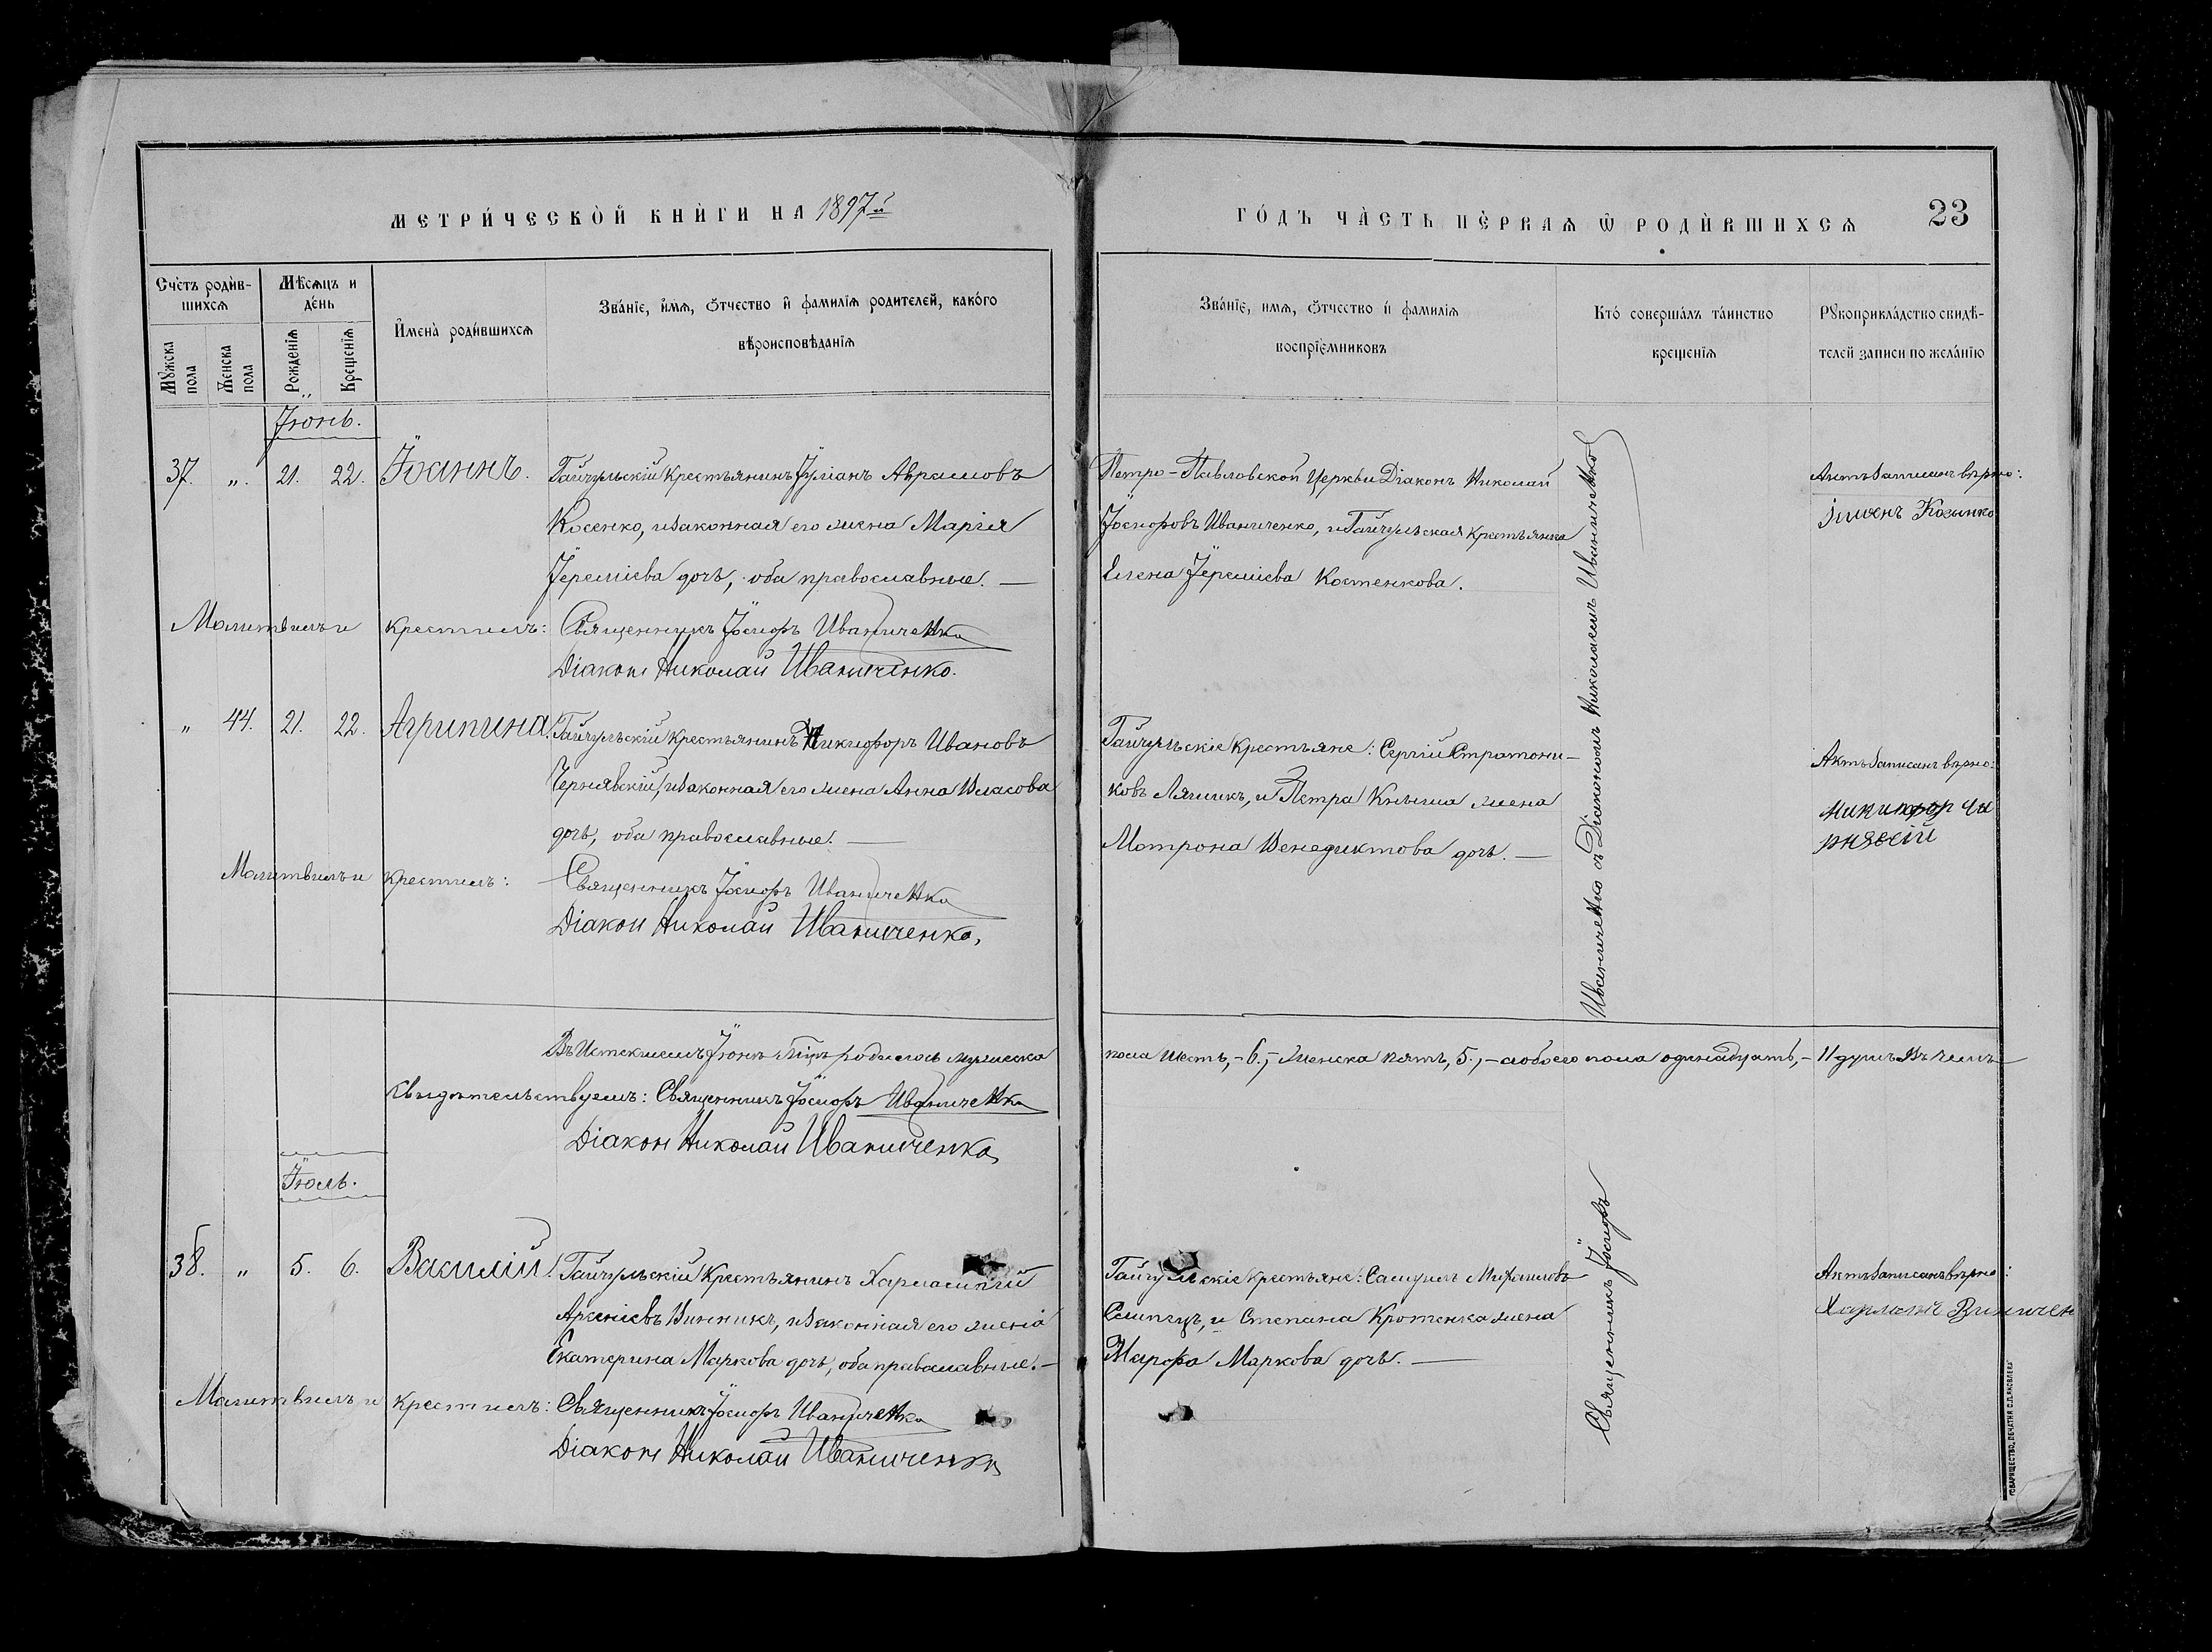 МЕТРИ́ЧЕСКО̀Й КНЍГИ НА 1897й
ГО́ДЪ ЧА̀СТЬ ПЀРВАѦ Ѡ̑ РОДЍВШИХСѦ 23
Сче́тъ роди́в-
шихсѧ
Мꙋжска пола
Женска пола
Мѣсѧцъ и
де́нь
Рожденїѧ
Крещенїѧ
Имена̀ роди́вшихсѧ
Зва́нїе, и́мѧ, ѻ́тчество и҆ фамилїѧ родителей, како́го
вѣроисповѣданїѧ
Зва́нїе, имѧ, ѻ́тчество и҆ фамилїѧ
воспрїе́мниковъ
Кто́ соверша́лъ та́инство
крещенїѧ
Рꙋкоприкла́дство свидѣ-
телей записи по жела́нїю
Іюнь.
37. „ 21. 22. Іоаннъ.
Гайчульскій крестьянинъ Іуліанъ Аврамовъ
Косенко, и законная его жена Марія
Іереміева дочь, оба православные. —
Петро-Павловской Церкви Діаконъ Николай
Іосифовъ Иваниченко, и Гайчульская крестьянка
Елена Іереміева Костенкова.
Актъ записанъ вѣрно:
Молитвилъ и крестилъ: Священникъ Іосифъ Иваниченко
Діаконъ Николай Иваниченко.
„ 44. 21. 22. Агрипина.
Гайчульскій крестьянинъ Никифоръ Ивановъ
Чернявскій, и законная его жена Анна Власова
дочь, оба православные. —
Гайчульскіе крестьяне: Сергій Стратони-
ковъ Лящикъ, и Петра Кныша жена
Мотрона Венедиктова дочь. —
Актъ записанъ вѣрно:
Никифор Че
рнявсій
Молитвилъ и крестилъ: Священникъ Іосифъ Иваниченко
Діакон Николай Иваниченко,
Въ Истекшемъ Іюнѣ м-цѣ родилось мужеска пола шесть,-6,- женска пять, 5,- а обоего пола одинадцать,- 11 душъ Въ чемъ
свидѣтельствуемъ: Священникъ Іосифъ Иваниченко
Діакон Николай Иваниченко,
Священникъ Іосифъ
Иваниченко съ Діакономъ Николаемъ Иваниченко
Іюль.
38. „ 5. 6. Василій.
Гайчульскій крестьянинъ Харлампій
Арсеніевъ Винникъ, и законная его жена
Екатерина Маркова дочь, оба православные. —
Гайчульскіе крестьяне: Самуилъ Михаиловъ
и Степана Кротенка жена
Марфа Маркова дочь. —
Актъ записанъ вѣрно:
Молитвилъ и крестилъ: Священникъ Іосифъ Иваниченко
Діаконъ Николай Иваниченко
ТОВАРИЩЕСТВО „ПЕЧАТНЯ С.П.ЯКОВЛЕВА“